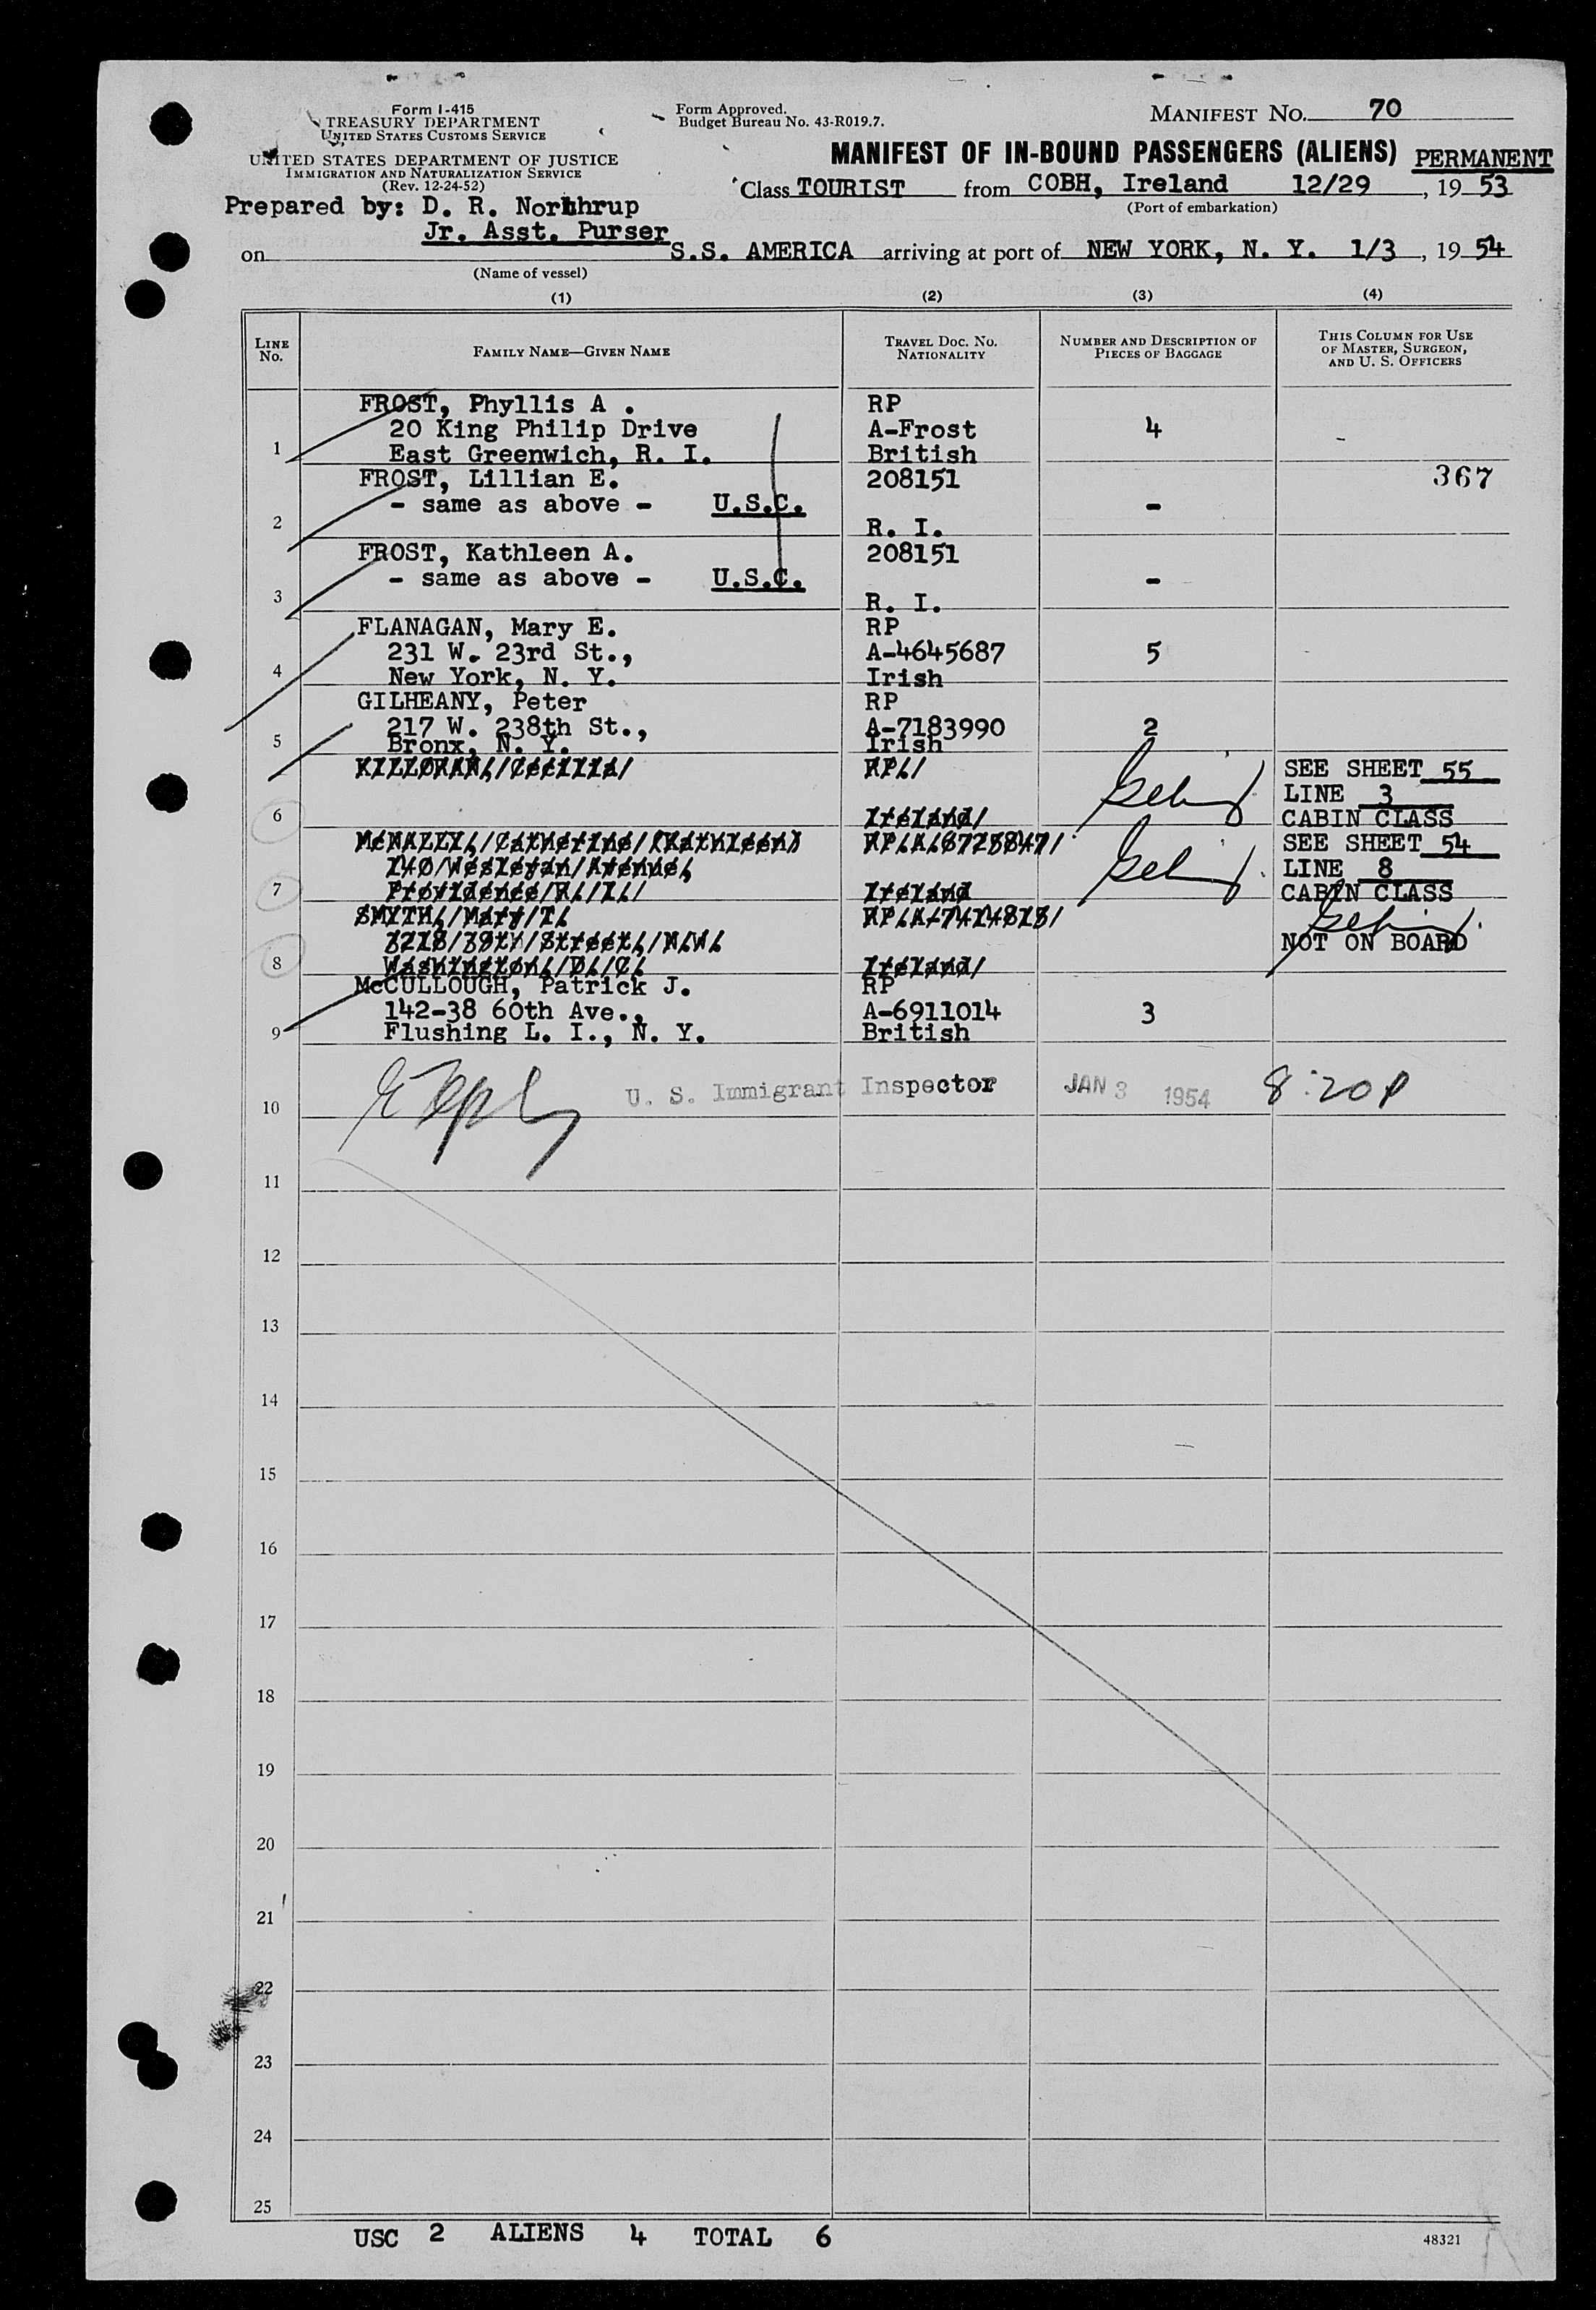 Form I-415
TREASURY DEPARTMENT
UNITED STATES CUSTOMS SERVICE
UNITED STATES DEPARTMENT OF JUSTICE
IMMIGRATION AND NATURALIZATION SERVICE
(Rev. 12-24-52)
Form Approved.
Budget Bureau No. 43-R019.7.
MANIFEST NO. 70
MANIFEST OF IN-BOUND PASSENGERS (ALIENS) PERMANENT
Class TOURIST from COBH, Ireland 12/29, 19 53
(Port of embarkation)
Prepared by: D. R. Northrup
Jr. Asst. Purser
on S.S. AMERICA arriving at port of NEW YORK, N. Y. 1/3, 19 54
(Name of vessel)
(1) (2) (3) (4)
LINE NO.
FAMILY NAME—GIVEN NAME
TRAVEL DOC. NO. NATIONALITY
NUMBER AND DESCRIPTION OF PIECES OF BAGGAGE
THIS COLUMN FOR USE OF MASTER, SURGEON, AND U. S. OFFICERS
FROST, Phyllis A . RP
20 King Philip Drive A-Frost 4 -
1 East Greenwich, R. I. British
FROST, Lillian E. 208151 367
- same as above - U.S.C. -
2 R. I.
FROST, Kathleen A. 208151
- same as above - U.S.C. -
3 R. I.
FLANAGAN, Mary E. RP
231 W. 23rd St., A-4645687 5
4 New York, N. Y. Irish
GILHEANY, Peter RP
217 W. 238th St., A-7183990 2
5 Bronx, N. Y. Irish
KILLORAN, Cecilia RP SEE SHEET 55
LINE 3
6 Ireland CABIN CLASS
McNALLY, Catherine (Kathleen) RP SEE SHEET 54
140 Wesleyan Avenue, LINE 8
7 Providence R. I. Ireland CABIN CLASS
SMYTH, Mary T. RP
39th Street, N.W. NOT ON BOARD
8 Washington, D. C. Ireland
McCULLOUGH, Patrick J. RP
142-38 60th Ave., A-6911014 3
9 Flushing L. I., N. Y. British
10 U. S. Immigrant Inspector JAN 3 1954 8:20 P
11
12
13
14
15
16
17
18
19
20
21
22
23
24
25
USC 2 ALIENS 4 TOTAL 6
48321